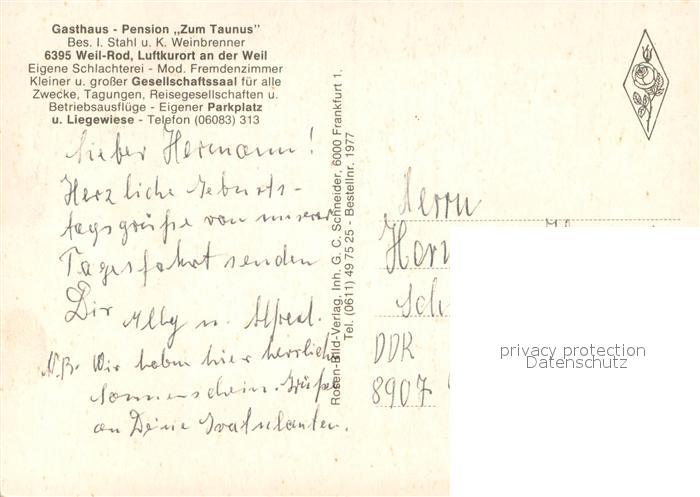 Gasthaus - Pension „Zum Taunus"
Bes. I. Stahl u. K. Weinbrenner
6395 Weil-Rod, Luftkurort an der Weil
Eigene Schlachterei - Mod. Fremdenzimmer
Kleiner u. großer Gesellschaftssaal für alle
Zwecke, Tagungen, Reisegesellschaften u.
Betriebsausflüge - Eigener Parkplatz
u. Liegewiese - Telefon (06083) 313
Lieber Hermann!
Herzliche Geburts-
tagsgrüße von unserer
Tagesfahrt senden
Dir Elly u. Alfred.
N.B. Wir haben hier herrlich
Sonnenschein. Grüße
an Deine Gratulanten.
Rosen-Bild-Verlag, Inh. G. C. Schneider, 6000 Frankfurt 1,
Tel. (0611) 49 75 25 - Bestellnr. 1977
Herrn
DDR
8907
privacy protection
Datenschutz